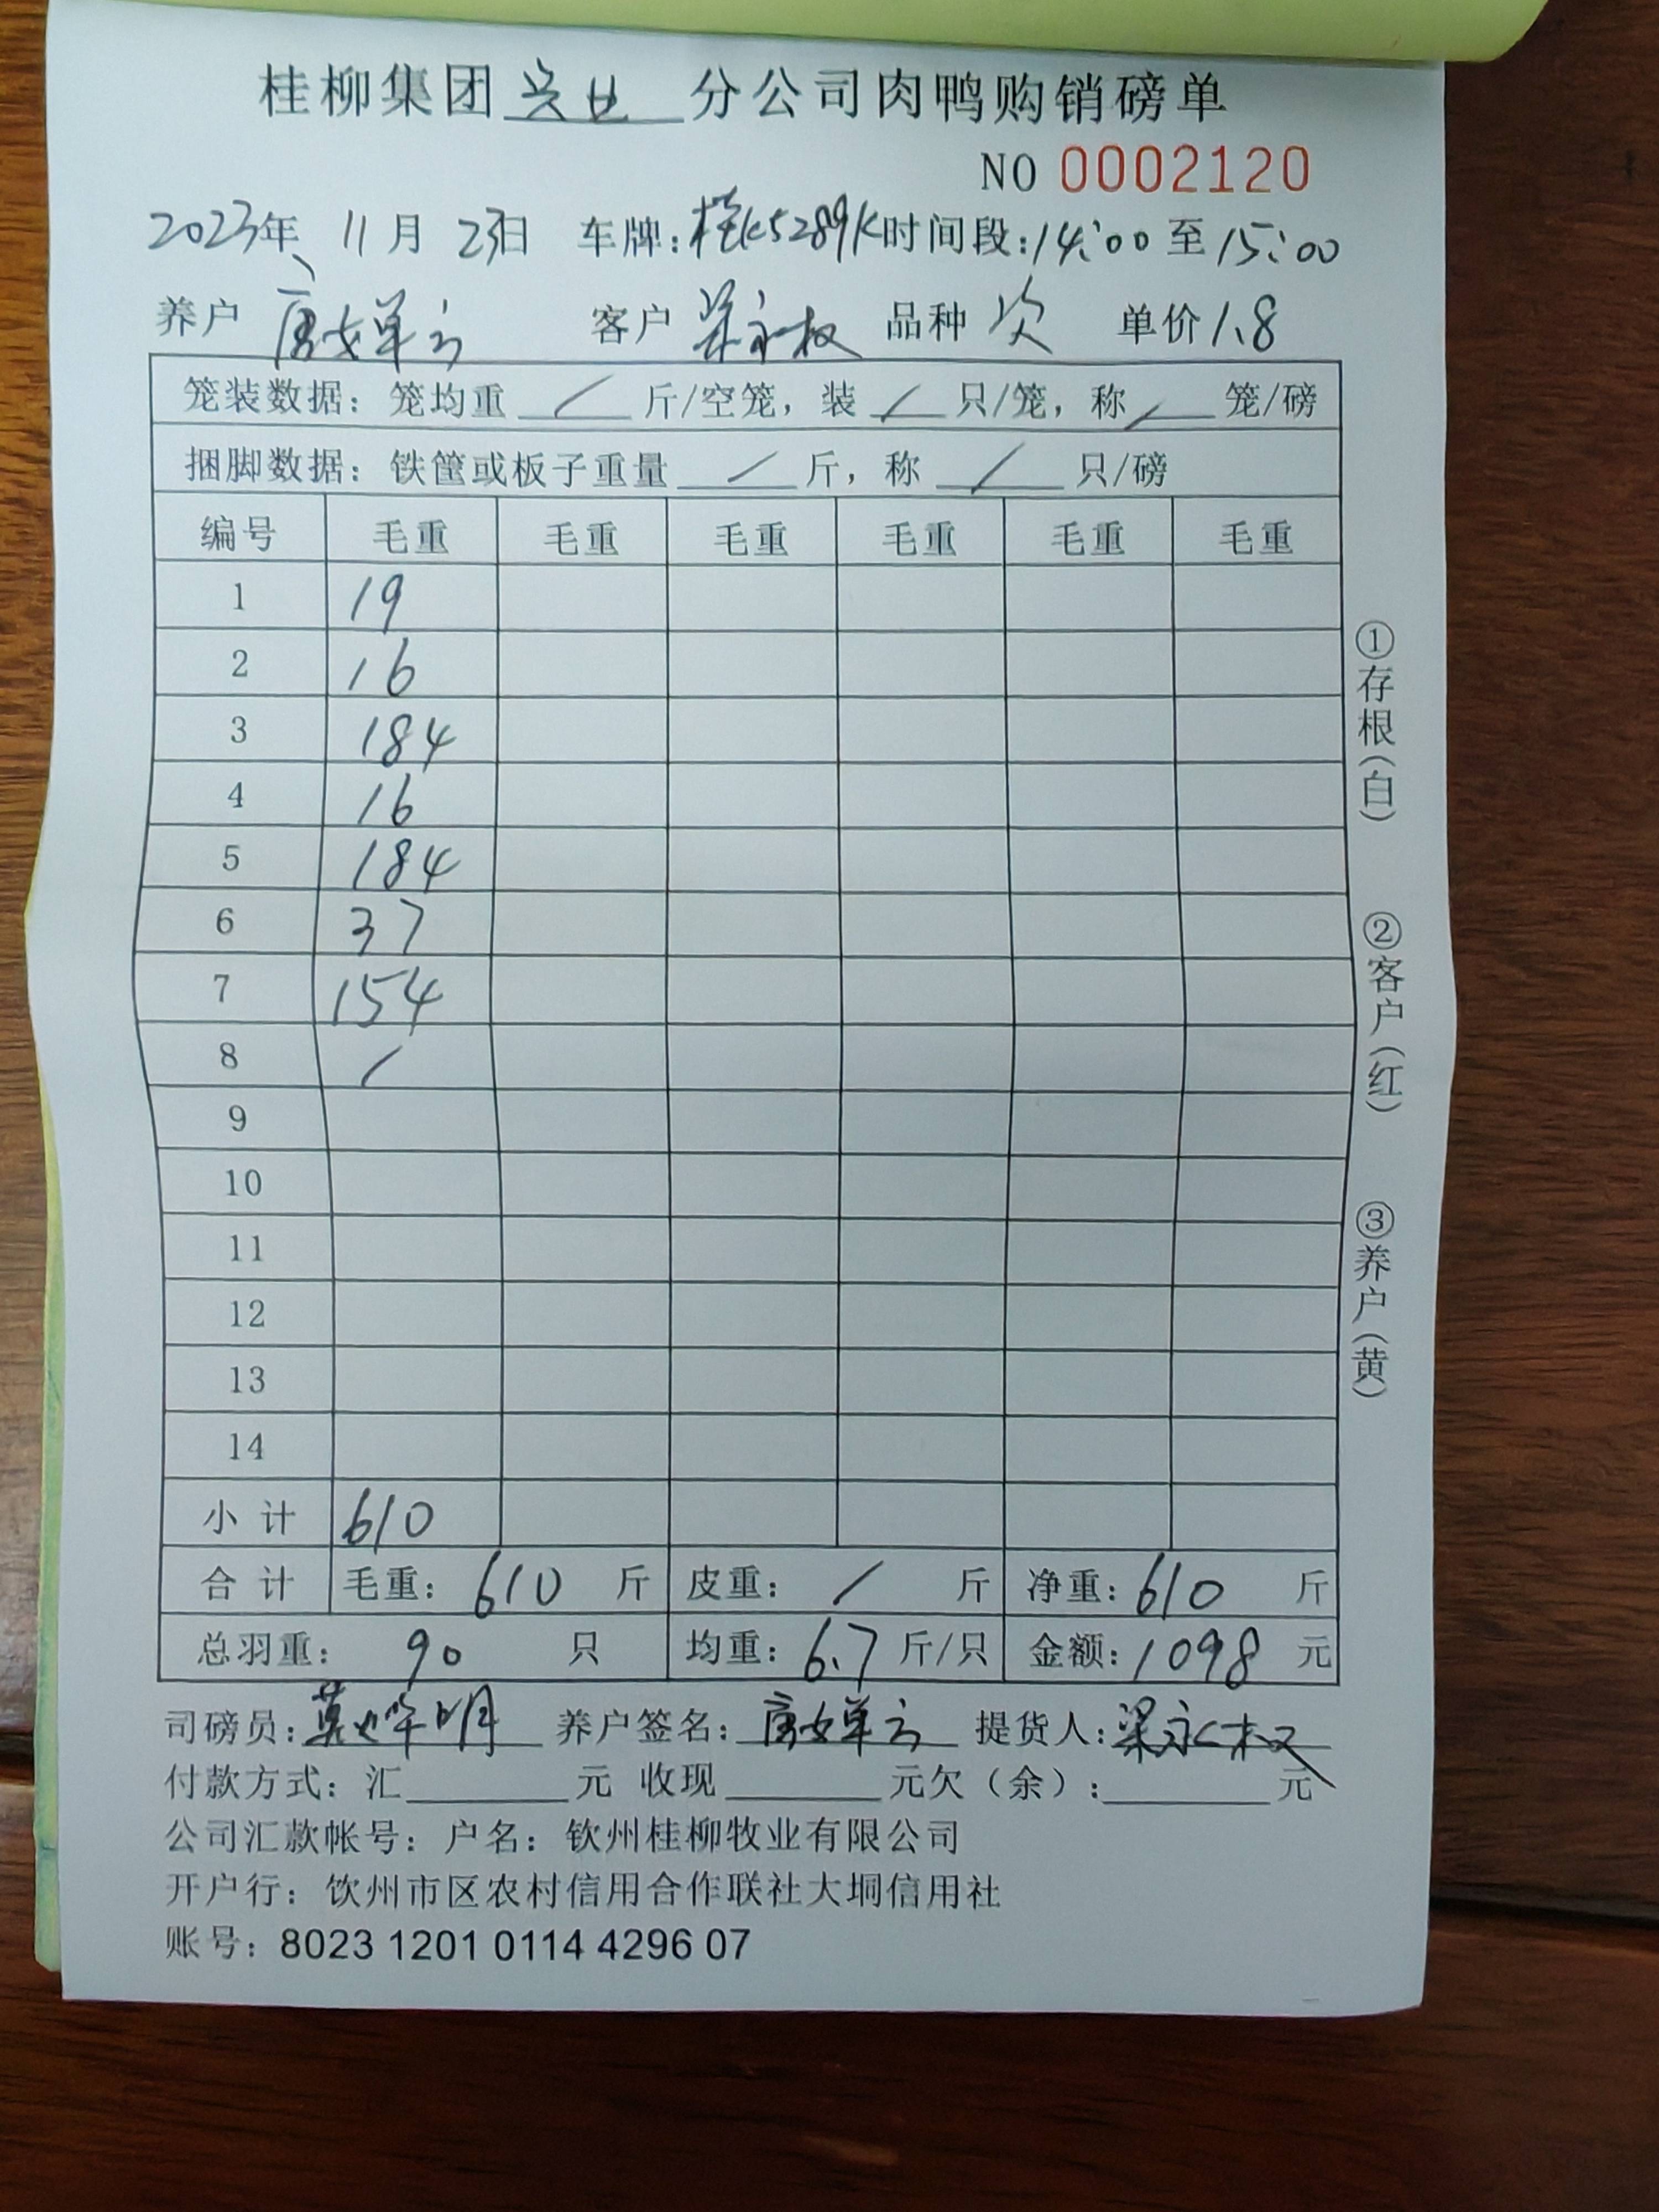 桂柳集团兴业分公司肉鸭购销磅单
NO 0002120
2023年 11月 23日 车牌:桂K5289K时间段:14:00至15:00
养户 唐婵云 客户 梁永权 品种 次 单价1.8
笼装数据：笼均重 / 斤/空笼，装 / 只/笼，称 / 笼/磅
捆脚数据：铁筐或板子重量 / 斤，称 / 只/磅
编号 毛重 毛重 毛重 毛重 毛重 毛重
1 19
2 16
3 184
4 16
5 184
6 37
7 154
8 /
9
10
11
12
13
14
小计 610
合计 毛重：610 斤 皮重：/ 斤 净重：610 斤
总羽重：90 只 均重：6.7 斤/只 金额：1098 元
司磅员： 养户签名：唐婵云 提货人：梁永权
付款方式：汇______元 收现______元欠（余）：______元
公司汇款帐号：户名：钦州桂柳牧业有限公司
开户行：饮州市区农村信用合作联社大垌信用社
账号：8023 1201 0114 4296 07
①存根(白)
②客户(红)
③养户(黄)